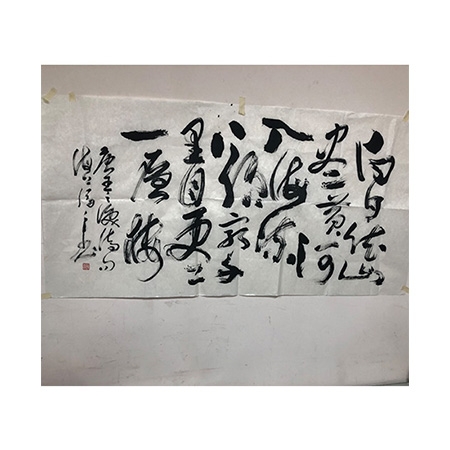 白日依山
尽黄河
入海流
欲穷千
里目更上
一层楼
唐王之涣诗